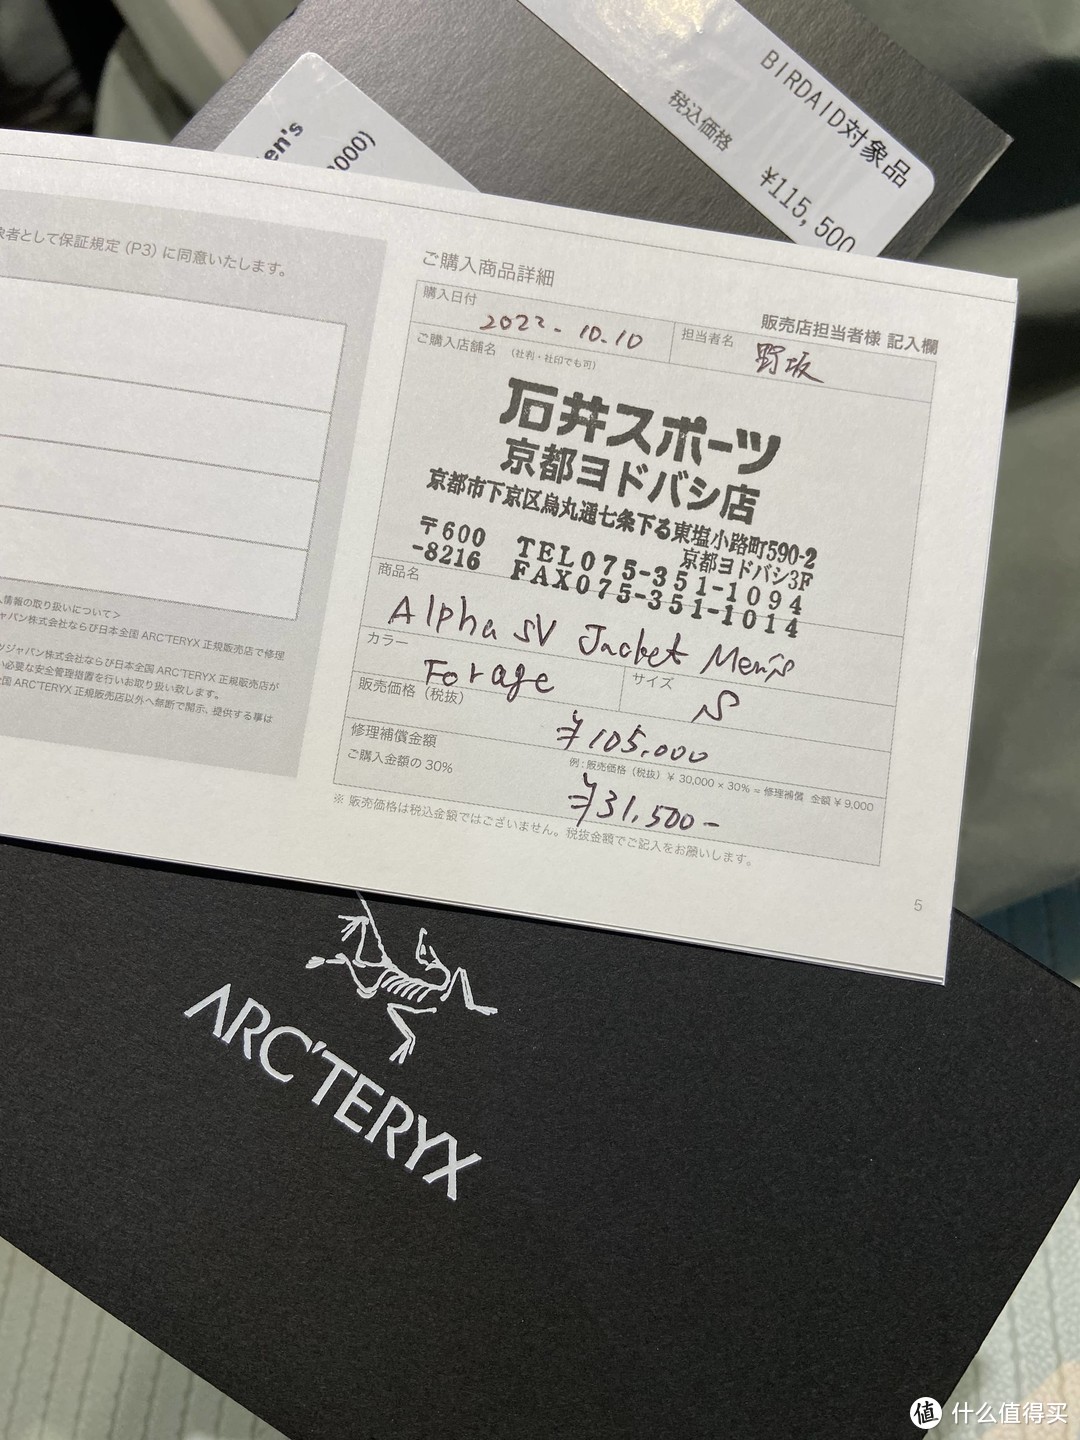 BIRDAID対象品
税込価格
¥115,500
en's
000)
象者として保証規定 (P3) に同意いたします。
ご購入商品詳細
販売店担当者様 記入欄
購入日付
2022-10.10
担当者名
野坂
ご購入店舗名 (社判・社印でも可)
石井スポーツ
京都ヨドバシ店
京都市下京区烏丸通七条下る東塩小路町590-2
京都ヨドバシ3F
〒600
-8216
TEL075-351-1094
FAX075-351-1014
商品名
Alpha SV Jacket Men's
カラー
Forage
サイズ
S
販売価格 (税抜)
¥105,000
例:販売価格 (税抜) ¥ 30,000 × 30% = 修理補償 金額 ¥ 9,000
修理補償金額
ご購入金額の 30%
¥31,500-
※ 販売価格は税込金額ではございません。税抜金額でご記入をお願いします。
人情報の取り扱いについて>
ャパン株式会社ならび日本全国 ARC'TERYX 正規販売店で修理
ツジャパン株式会社ならび日本全国 ARC'TERYX 正規販売店が
い必要な安全管理措置を行いお取り扱い致します。
全国 ARC'TERYX 正規販売店以外へ無断で開示、提供する事は
5
ARC'TERYX
值 什么值得买